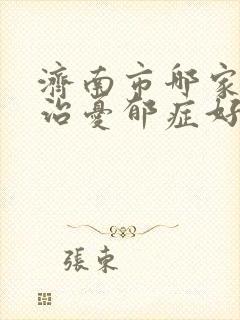 濟南市哪家
治憂郁症好
張東